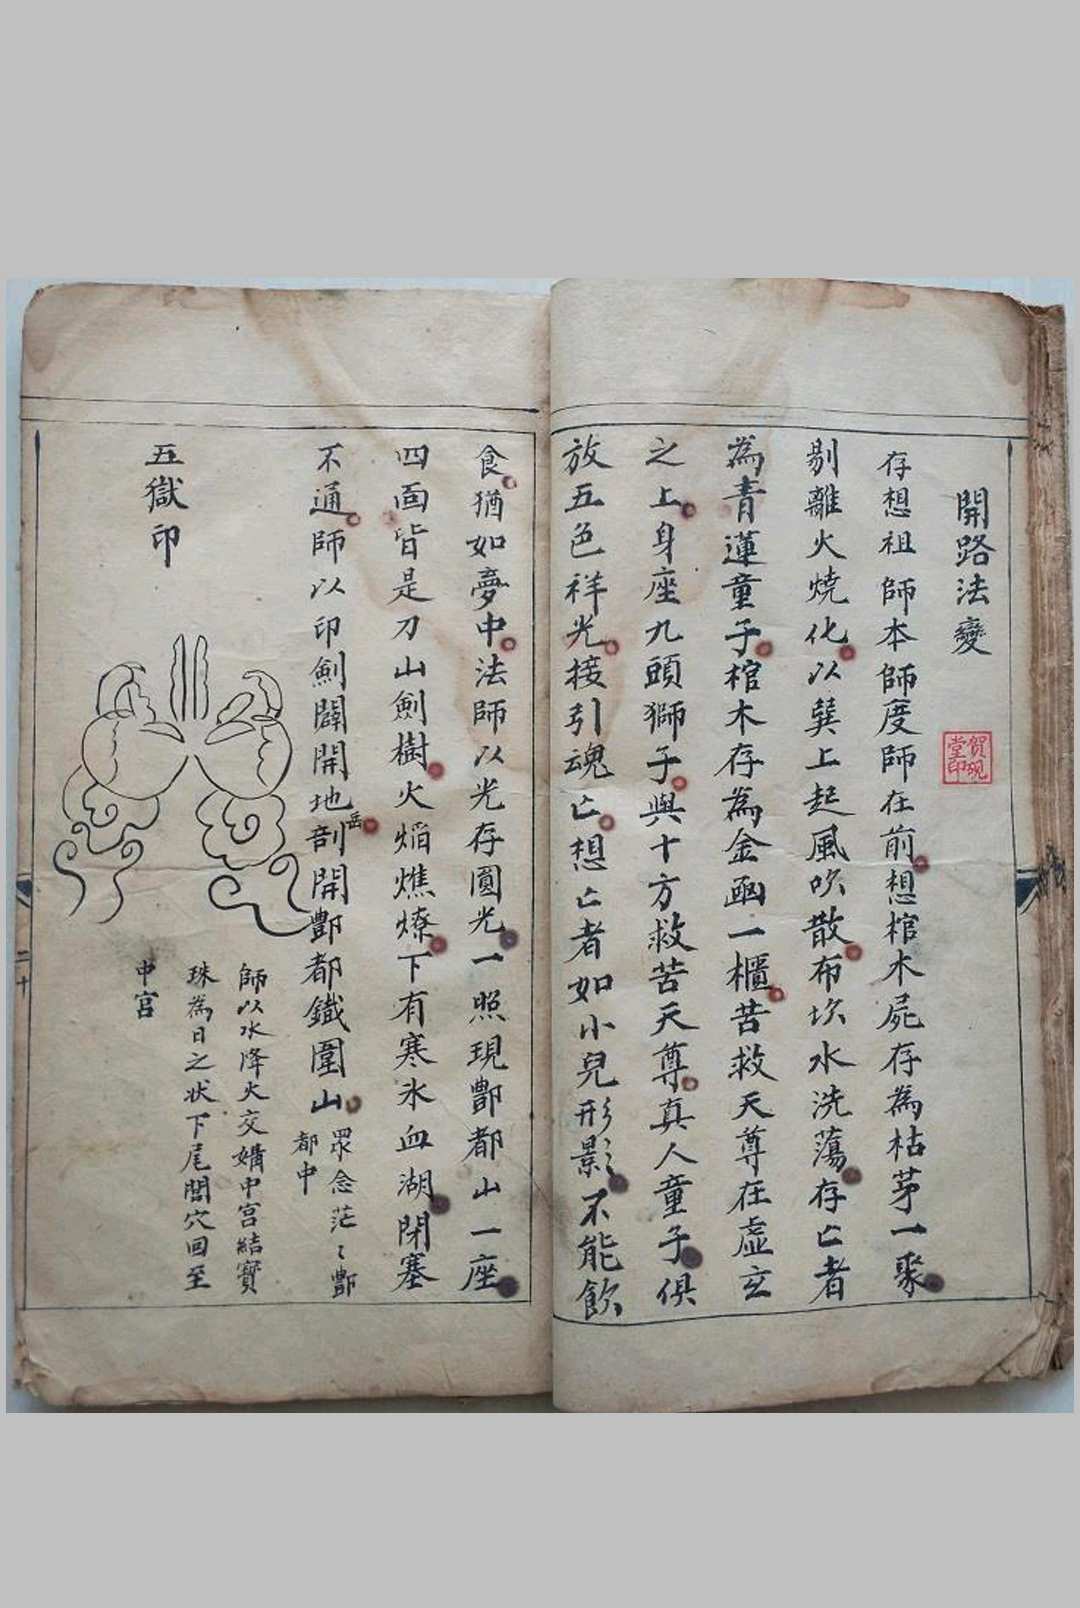 開路法變
賀硯堂印
存想祖師本師度師在前想棺木屍存為枯茅一聚
剔離火燒化以巽上起風吹散布坎水洗蕩存亡者
為青蓮童子棺木存為金函一櫃苦救天尊在虛玄
之上身座九頭獅子與十方救苦天尊真人童子俱
放五色祥光接引魂亡想亡者如小兒形影不能飲
食猶如夢中法師以光存圓光一照現酆都山一座
四面皆是刀山劍樹火焰燋燎下有寒氷血湖閉塞
不通師以印劍闢開地岳剖開酆都鐵圍山
眾念茫〻酆
都中
五獄印
師以水降火交媾中宮結寶
珠為日之状下尾閭穴回至
中宮
二十